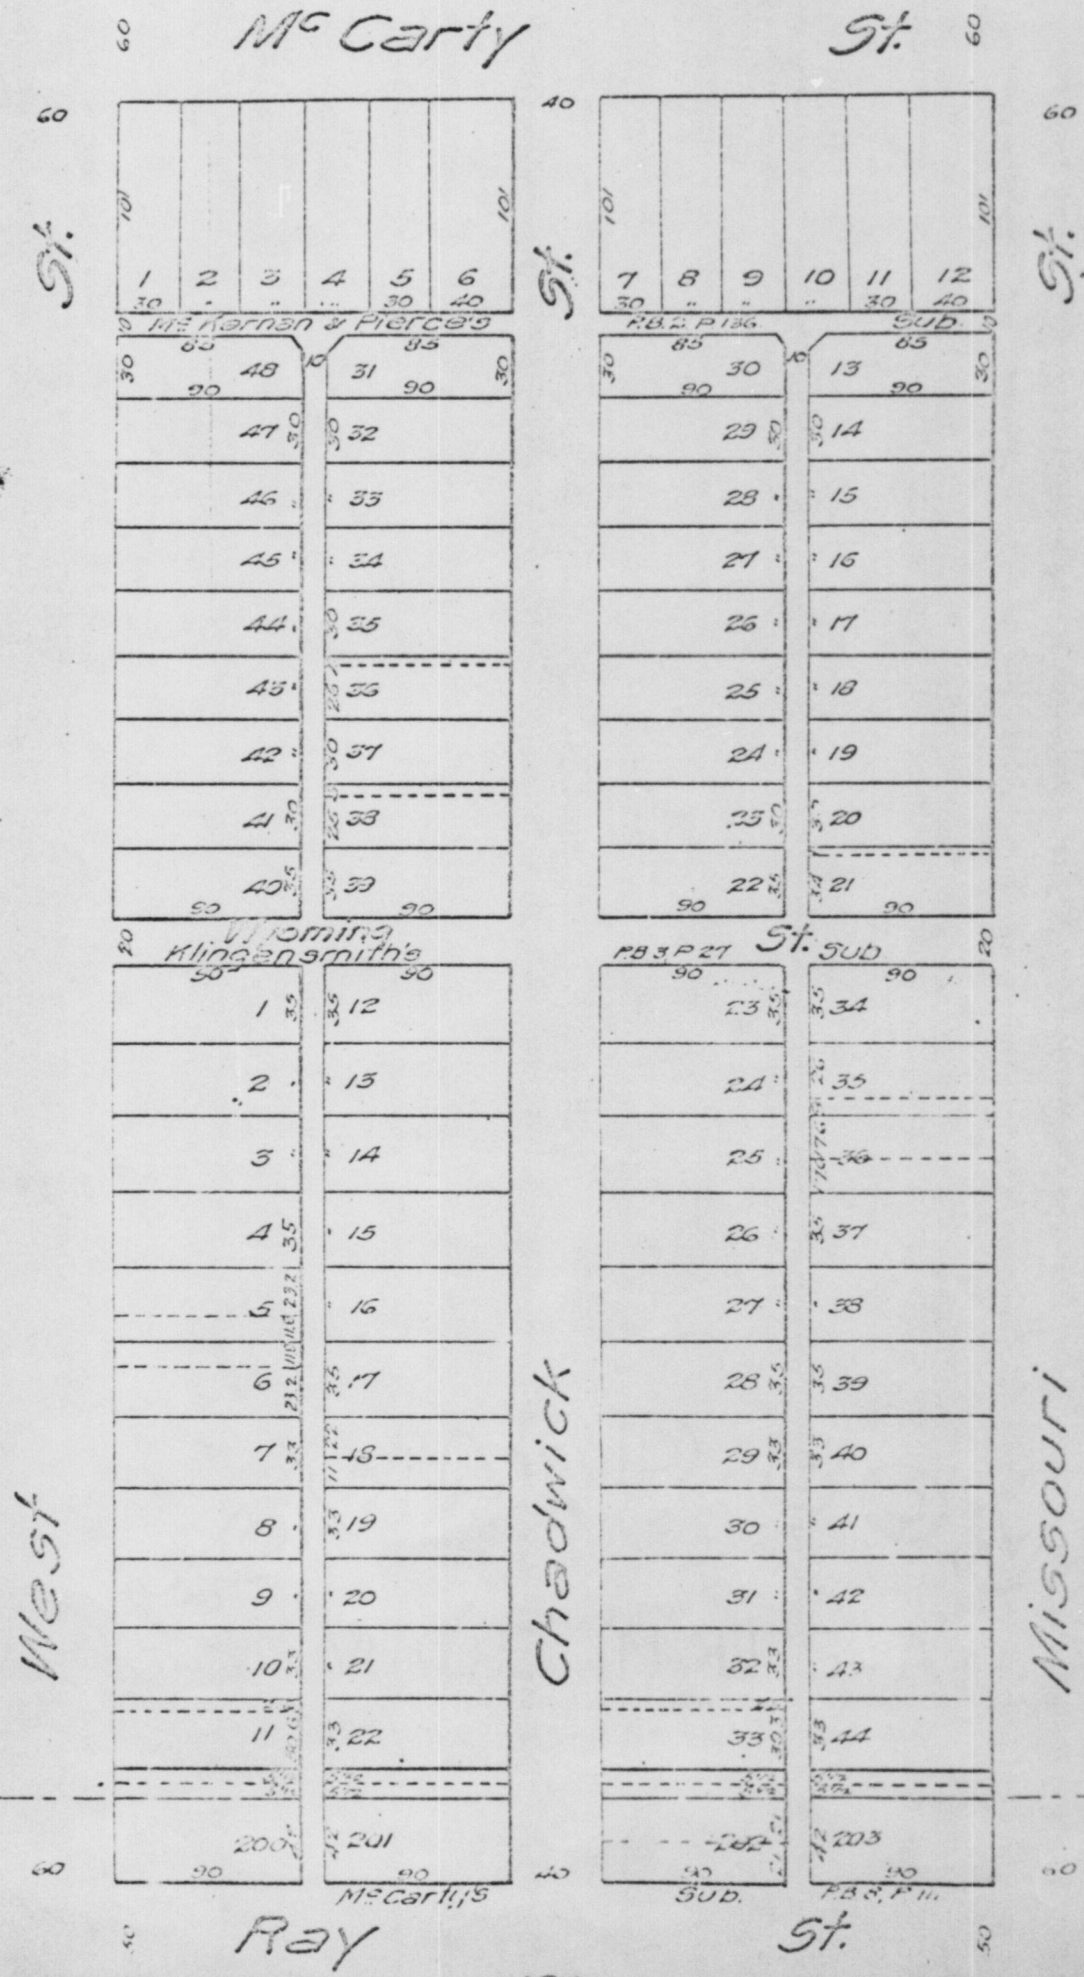 60 Mc Carty St. 60
60 40 60
101 101 101 101
St. St. St.
1 2 3 4 5 6 7 8 9 10 11 12
30 " " " 30 40 30 " " " 30 40
Mc Kernan & Pierce's P.B. 2. P 136. Sub.
85 85 85 85
30 48 10 31 30 30 30 10 13 30
90 90 90 90
47 30 30 32 29 30 30 14
46 " " 33 28 " " 15
45 " " 34 27 " " 16
44 " 30 35 26 " " 17
43 " 36 25 " " 18
42 " 30 37 24 " " 19
41 30 38 30 20
40 35 35 39 22 35 34 21
90 90 90 90
20 Wyoming St. 20
Klingensmith's P.B 3, P 27 Sub
90 90 90 90
1 35 35 12 23 35 35 34
2 " " 13 24 " 26 35
3 " " 14 25 " 36
4 35 " 15 26 " 35 37
5 23 2 " 16 27 " " 38
6 23 2 35 17 28 35 35 39
7 33 11 22 18 29 33 33 40
8 " 33 19 30 " 41
9 " " 20 31 " " 42
10 33 " 21 32 33 " 43
11 33 22 33 33 44
200 42 201 202 21 21 42 203
60 90 90 40 90 90 60
Mc Carty's Sub. P.B 8, P 111.
West Chadwick Missouri
50 Ray St. 50